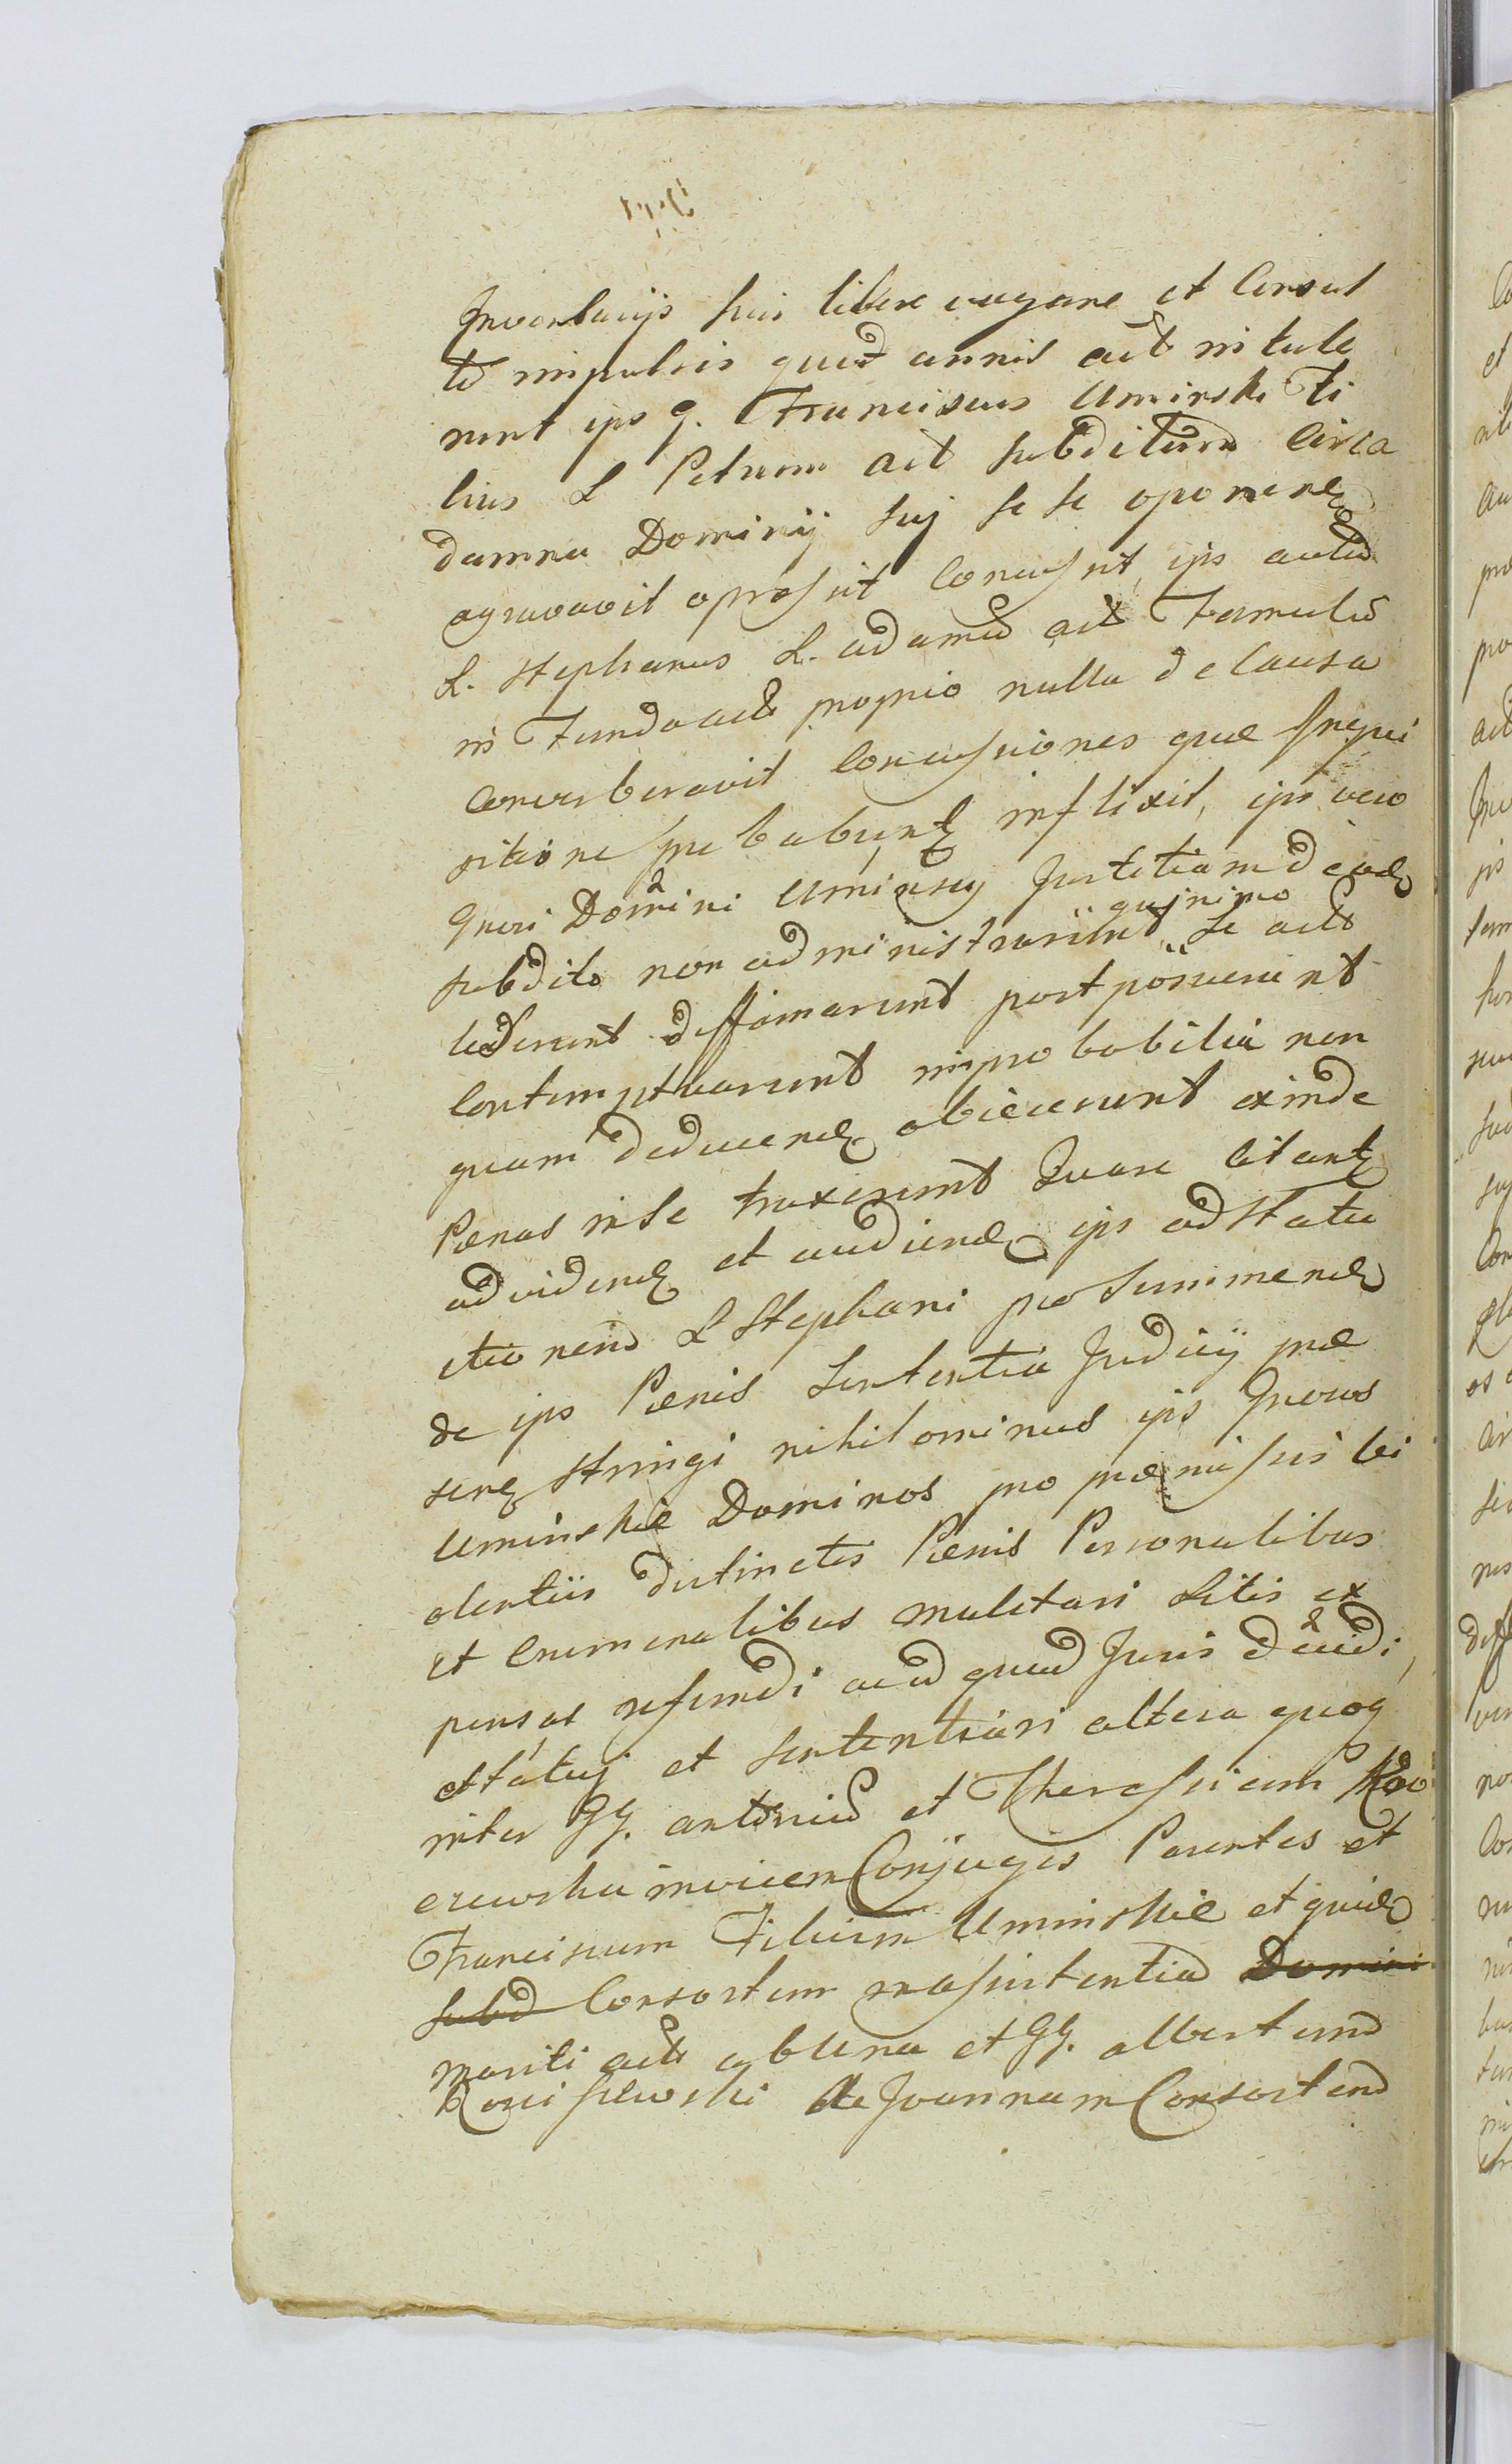 Inventarijs suis libere vagare et Consul
to impulsis quod annis act intule
runt ips g. Franciscus Uminski Fi
lius L Petrum act subditum Circa
damna Dominij suj se se oponend
agravavit opressit Concussit, ips autem
L. Stephanus L. adamum act Famulum
in Fundo act proprio nulla de Causa
Converberavit Concussiones quae Inqui
sitione probabunt inflixit, ips vero
Gneri Domini Uminscy Justitiam de eod
subdito non administrarunt quinimo se act
lederunt deffamarunt postposuerunt
Contemptuarunt improbabilia non
quam deducend obiecerunt exinde
Poenas in se traxerunt Quare citant
ad vidend et audiend ips ad statu
itionem L Stephani pro summend
de ips Poenis Sententia Judicij prae
sent stringi nihilominus ips Gneros
Uminskie Dominos pro praemissis vi
olentiis distinctis Poenis Personalibus
et Criminalibus mulctari Litis ex
pensas refundi aliud quid Juris decidi,
statuj et sententiari altera quoq
inter GG. antonium et Theressiam Koo
erewska invicem Conjuges Parentes et
Franciscum Filium Uminskie et quid
subd Consortem in assistentia Domini
mariti act ab Una et GG. albertum
Rosci szewski et Joannam Consortem